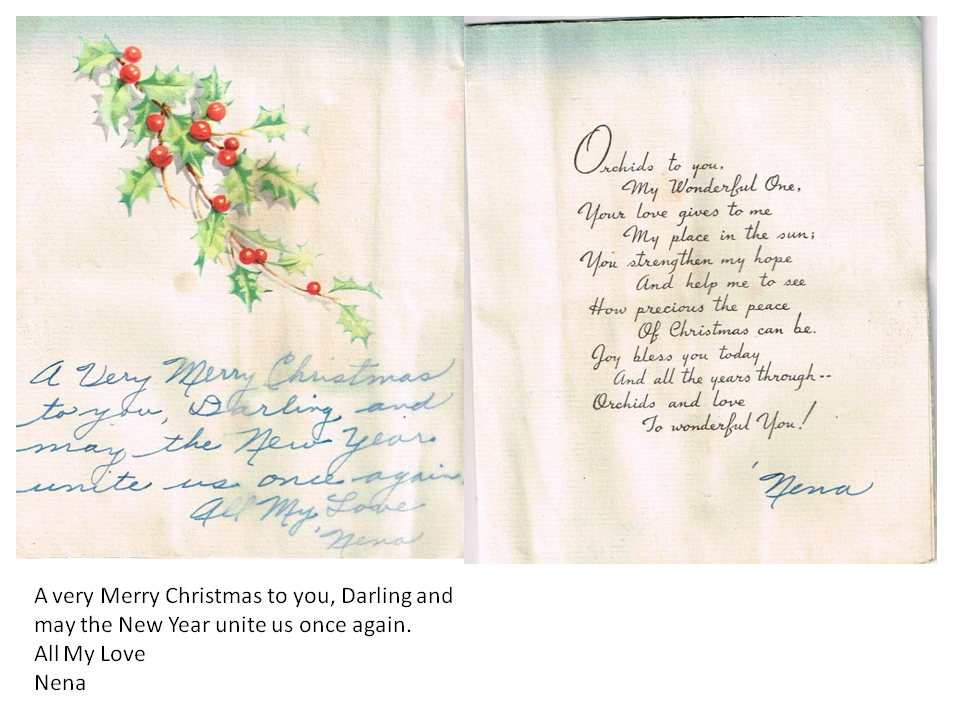 A Very Merry Christmas
to you, Darling and
may the New Year
unite us once again.
All My Love
'Nena
Orchids to you,
My Wonderful One,
Your love gives to me
My place in the sun;
You strengthen my hope
And help me to see
How precious the peace
Of Christmas can be.
Joy bless you today
And all the years through--
Orchids and love
To wonderful You!
'Nena
A very Merry Christmas to you, Darling and
may the New Year unite us once again.
All My Love
Nena